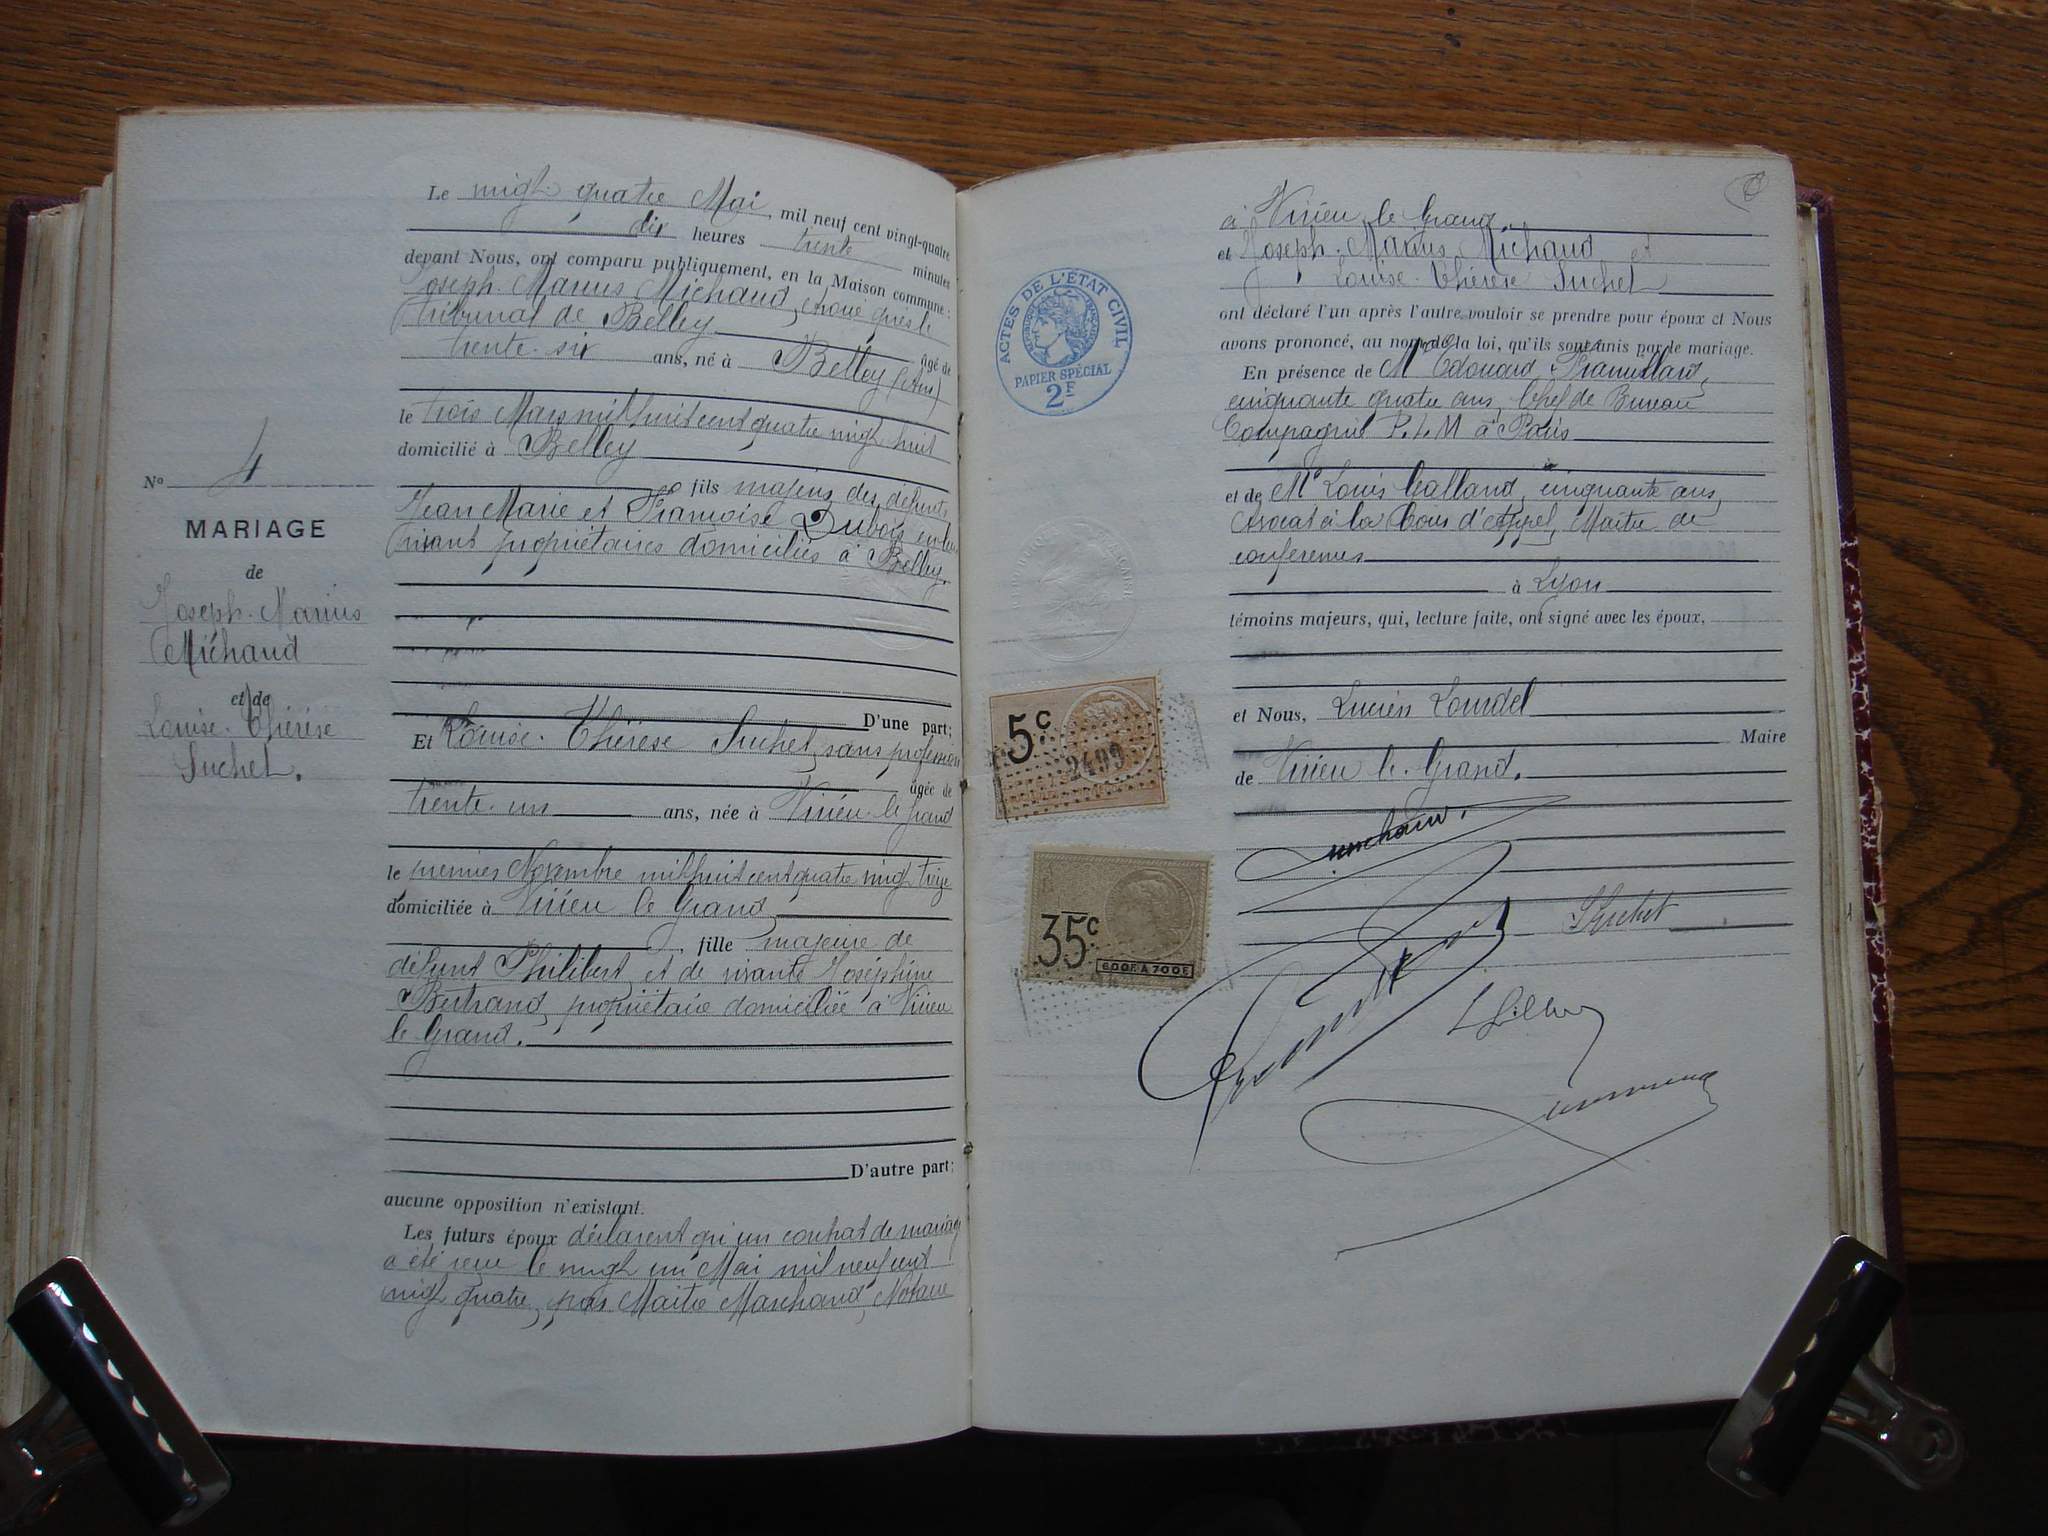 Le vingt quatre Mai, mil neuf cent vingt-quatre
dix heures trente minutes
devant Nous, ont comparu publiquement, en la Maison commune:
Joseph-Marius Michaud, avoué près le
Tribunal de Belley
âgé de
trente-six ans, né à Belley (Ain)
le trois Mars mil huit cent quatre vingt huit
domicilié à Belley
fils majeur des défunts
Jean Marie et Françoise Dubois en leur
vivant propriétaires domiciliés à Belley.
D'une part;
Et Louise-Thérèse Suchet, sans profession
âgée de
trente-un ans, née à Virieu-le-Grand
le premier Novembre mil huit cent quatre vingt treize
domiciliée à Virieu le Grand
fille majeure de
défunt Philibert et de vivante Joséphine
Bertrand, propriétaire domiciliée à Virieu
le Grand.
D'autre part;
aucune opposition n'existant.
Les futurs époux déclarent qu'un contrat de mariage
a été reçu le vingt un Mai mil neuf cent
vingt quatre, par Maître Marchand, Notaire
No 4
MARIAGE
de
Joseph-Marius
Michaud
et de
Louise-Thérèse
Suchet.
à Virieu le Grand
et Joseph-Marius Michaud et
Louise-Thérèse Suchet
ont déclaré l'un après l'autre vouloir se prendre pour époux et Nous
avons prononcé, au nom de la loi, qu'ils sont unis par le mariage.
En présence de M Edouard
cinquante quatre ans, Chef de Bureau
Compagnie P.L.M à Paris
et de Me Louis Galland, cinquante ans,
Avocat à la Cour d'Appel, Maître de
conférences
à Lyon
témoins majeurs, qui, lecture faite, ont signé avec les époux,
et Nous, Lucien Lourdel
Maire
de Virieu le Grand.
Suchet
ACTES DE L'ÉTAT CIVIL
PAPIER SPÉCIAL
2F
5c
2499
35c
600F À 700F